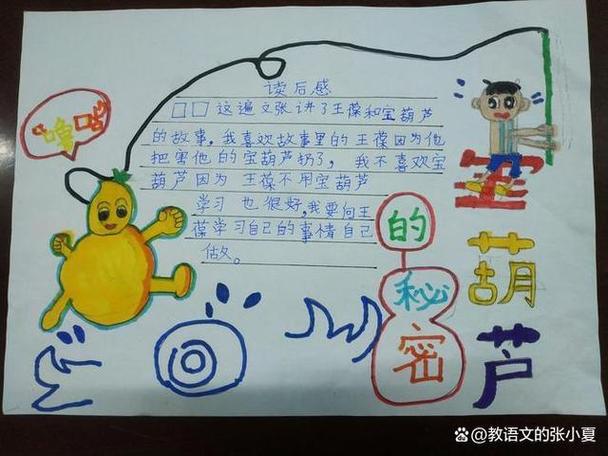 读后感
□□这遍文张讲了王葆和宝葫芦
的故事，我喜欢故事里的王葆因为他
把害他的宝葫芦扔了，我不喜欢宝
葫芦因为王葆不用宝葫芦
学习也很好，我要向王
葆学习自己的事情自己
做。
“噜咕”
宝
葫
芦
的
秘
密
@教语文的张小夏